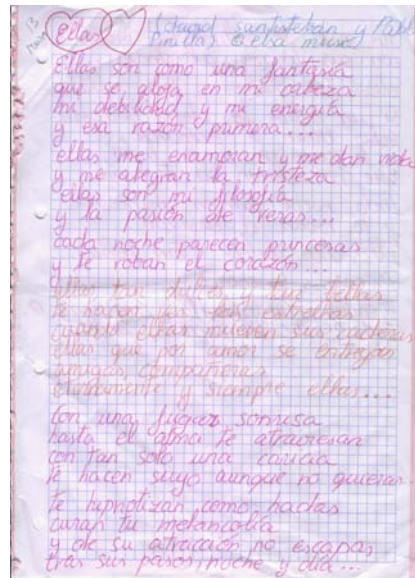 13
Ellas (david santisteban y Pablo
Pinilla) Elsa
Ellas son como una fantasía
que se aloja en mi cabeza
mi debilidad y mi energía
y esa razón primera...
ellas me enamoran y me dan vida
y me alegran la tristeza
ellas son mi filosofía
y la pasión de veras...
cada noche parecen princesas
y te roban el corazón...
ellas tan dulces y tan bellas
te hacen las estrellas
cuando ellas mueven sus caderas
ellas que por amor se entregan
amigas, compañeras
eternamente y siempre ellas...
con una fugaz sonrisa
hasta el alma te atraviesan
con tan solo una caricia
te hacen suyo aunque no quieras.
te hipnotizan como hadas
curan tu melancolía
y de su atracción no escapas
tras sus pasos, noche y día...